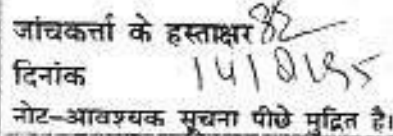 जांचकर्त्ता के हस्ताक्षर
दिनांक
नोट-आवश्यक सूचना पीछे मुद्रित है।